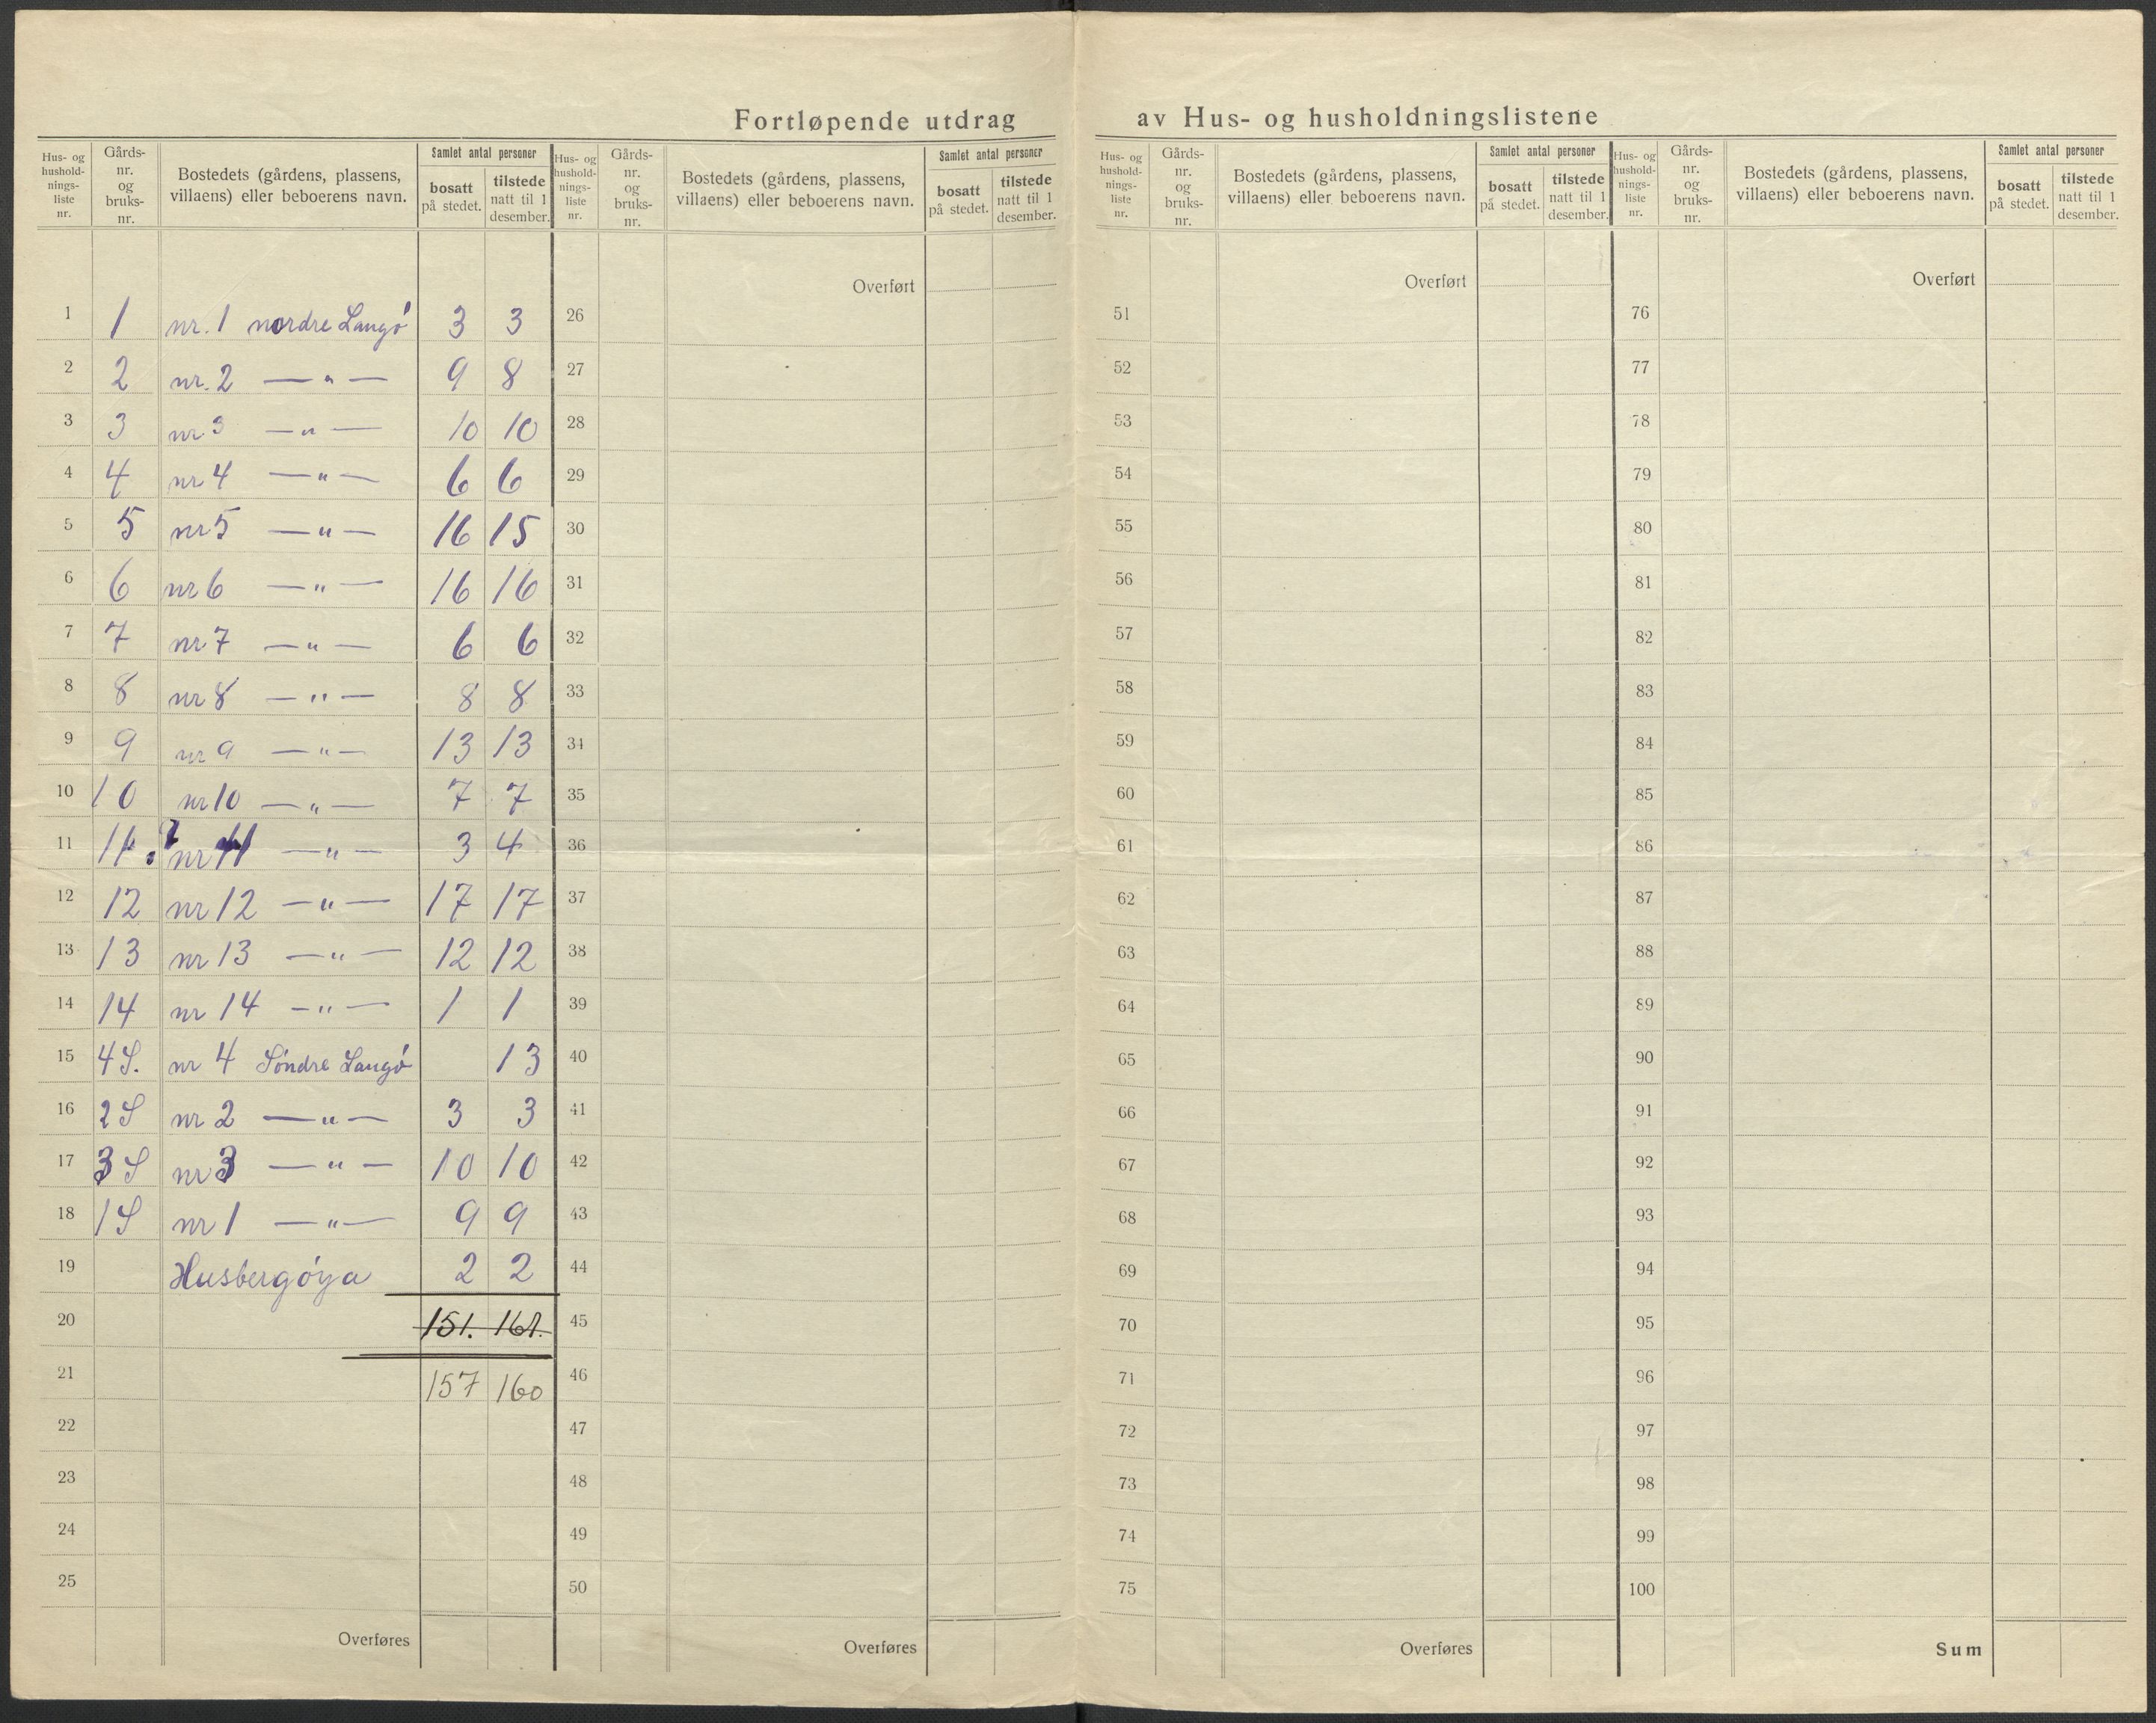 Fortløpende utdrag av Hus- og husholdningslistene
Hus- og hushold-nings-liste nr. Gårds-nr. og bruks-nr. Bostedets (gårdens, plassens, villaens) eller beboerens navn. Samlet antal personer bosatt på stedet. tilstede natt til 1 desember.
Hus- og hushold-nings-liste nr. Gårds-nr. og bruks-nr. Bostedets (gårdens, plassens, villaens) eller beboerens navn. Samlet antal personer bosatt på stedet. tilstede natt til 1 desember.
Hus- og hushold-nings-liste nr. Gårds-nr. og bruks-nr. Bostedets (gårdens, plassens, villaens) eller beboerens navn. Samlet antal personer bosatt på stedet. tilstede natt til 1 desember.
Hus- og hushold-nings-liste nr. Gårds-nr. og bruks-nr. Bostedets (gårdens, plassens, villaens) eller beboerens navn. Samlet antal personer bosatt på stedet. tilstede natt til 1 desember.
Overført Overført Overført
1 1 nr. 1 nordre Langø 3 3 26 51 76
2 2 nr. 2 — " — 9 8 27 52 77
3 3 nr 3 — " — 10 10 28 53 78
4 4 nr 4 — " — 6 6 29 54 79
5 5 nr 5 — " — 16 15 30 55 80
6 6 nr 6 — " — 16 16 31 56 81
7 7 nr 7 — " — 6 6 32 57 82
8 8 nr 8 — " — 8 8 33 58 83
9 9 nr 9 — " — 13 13 34 59 84
10 10 nr 10 — " — 7 7 35 60 85
11 11 nr 11 — " — 3 4 36 61 86
12 12 nr 12 — " — 17 17 37 62 87
13 13 nr 13 — " — 12 12 38 63 88
14 14 nr 14 — " — 1 1 39 64 89
15 4 S. nr 4 Søndre Langø 13 40 65 90
16 2 S nr 2 — " — 3 3 41 66 91
17 3 S nr 3 — " — 10 10 42 67 92
18 1 S nr 1 — " — 9 9 43 68 93
19 Husbergøya 2 2 44 69 94
20 151. 161. 45 70 95
21 157 160 46 71 96
22 47 72 97
23 48 73 98
24 49 74 99
25 50 75 100
Overføres Overføres Overføres Sum